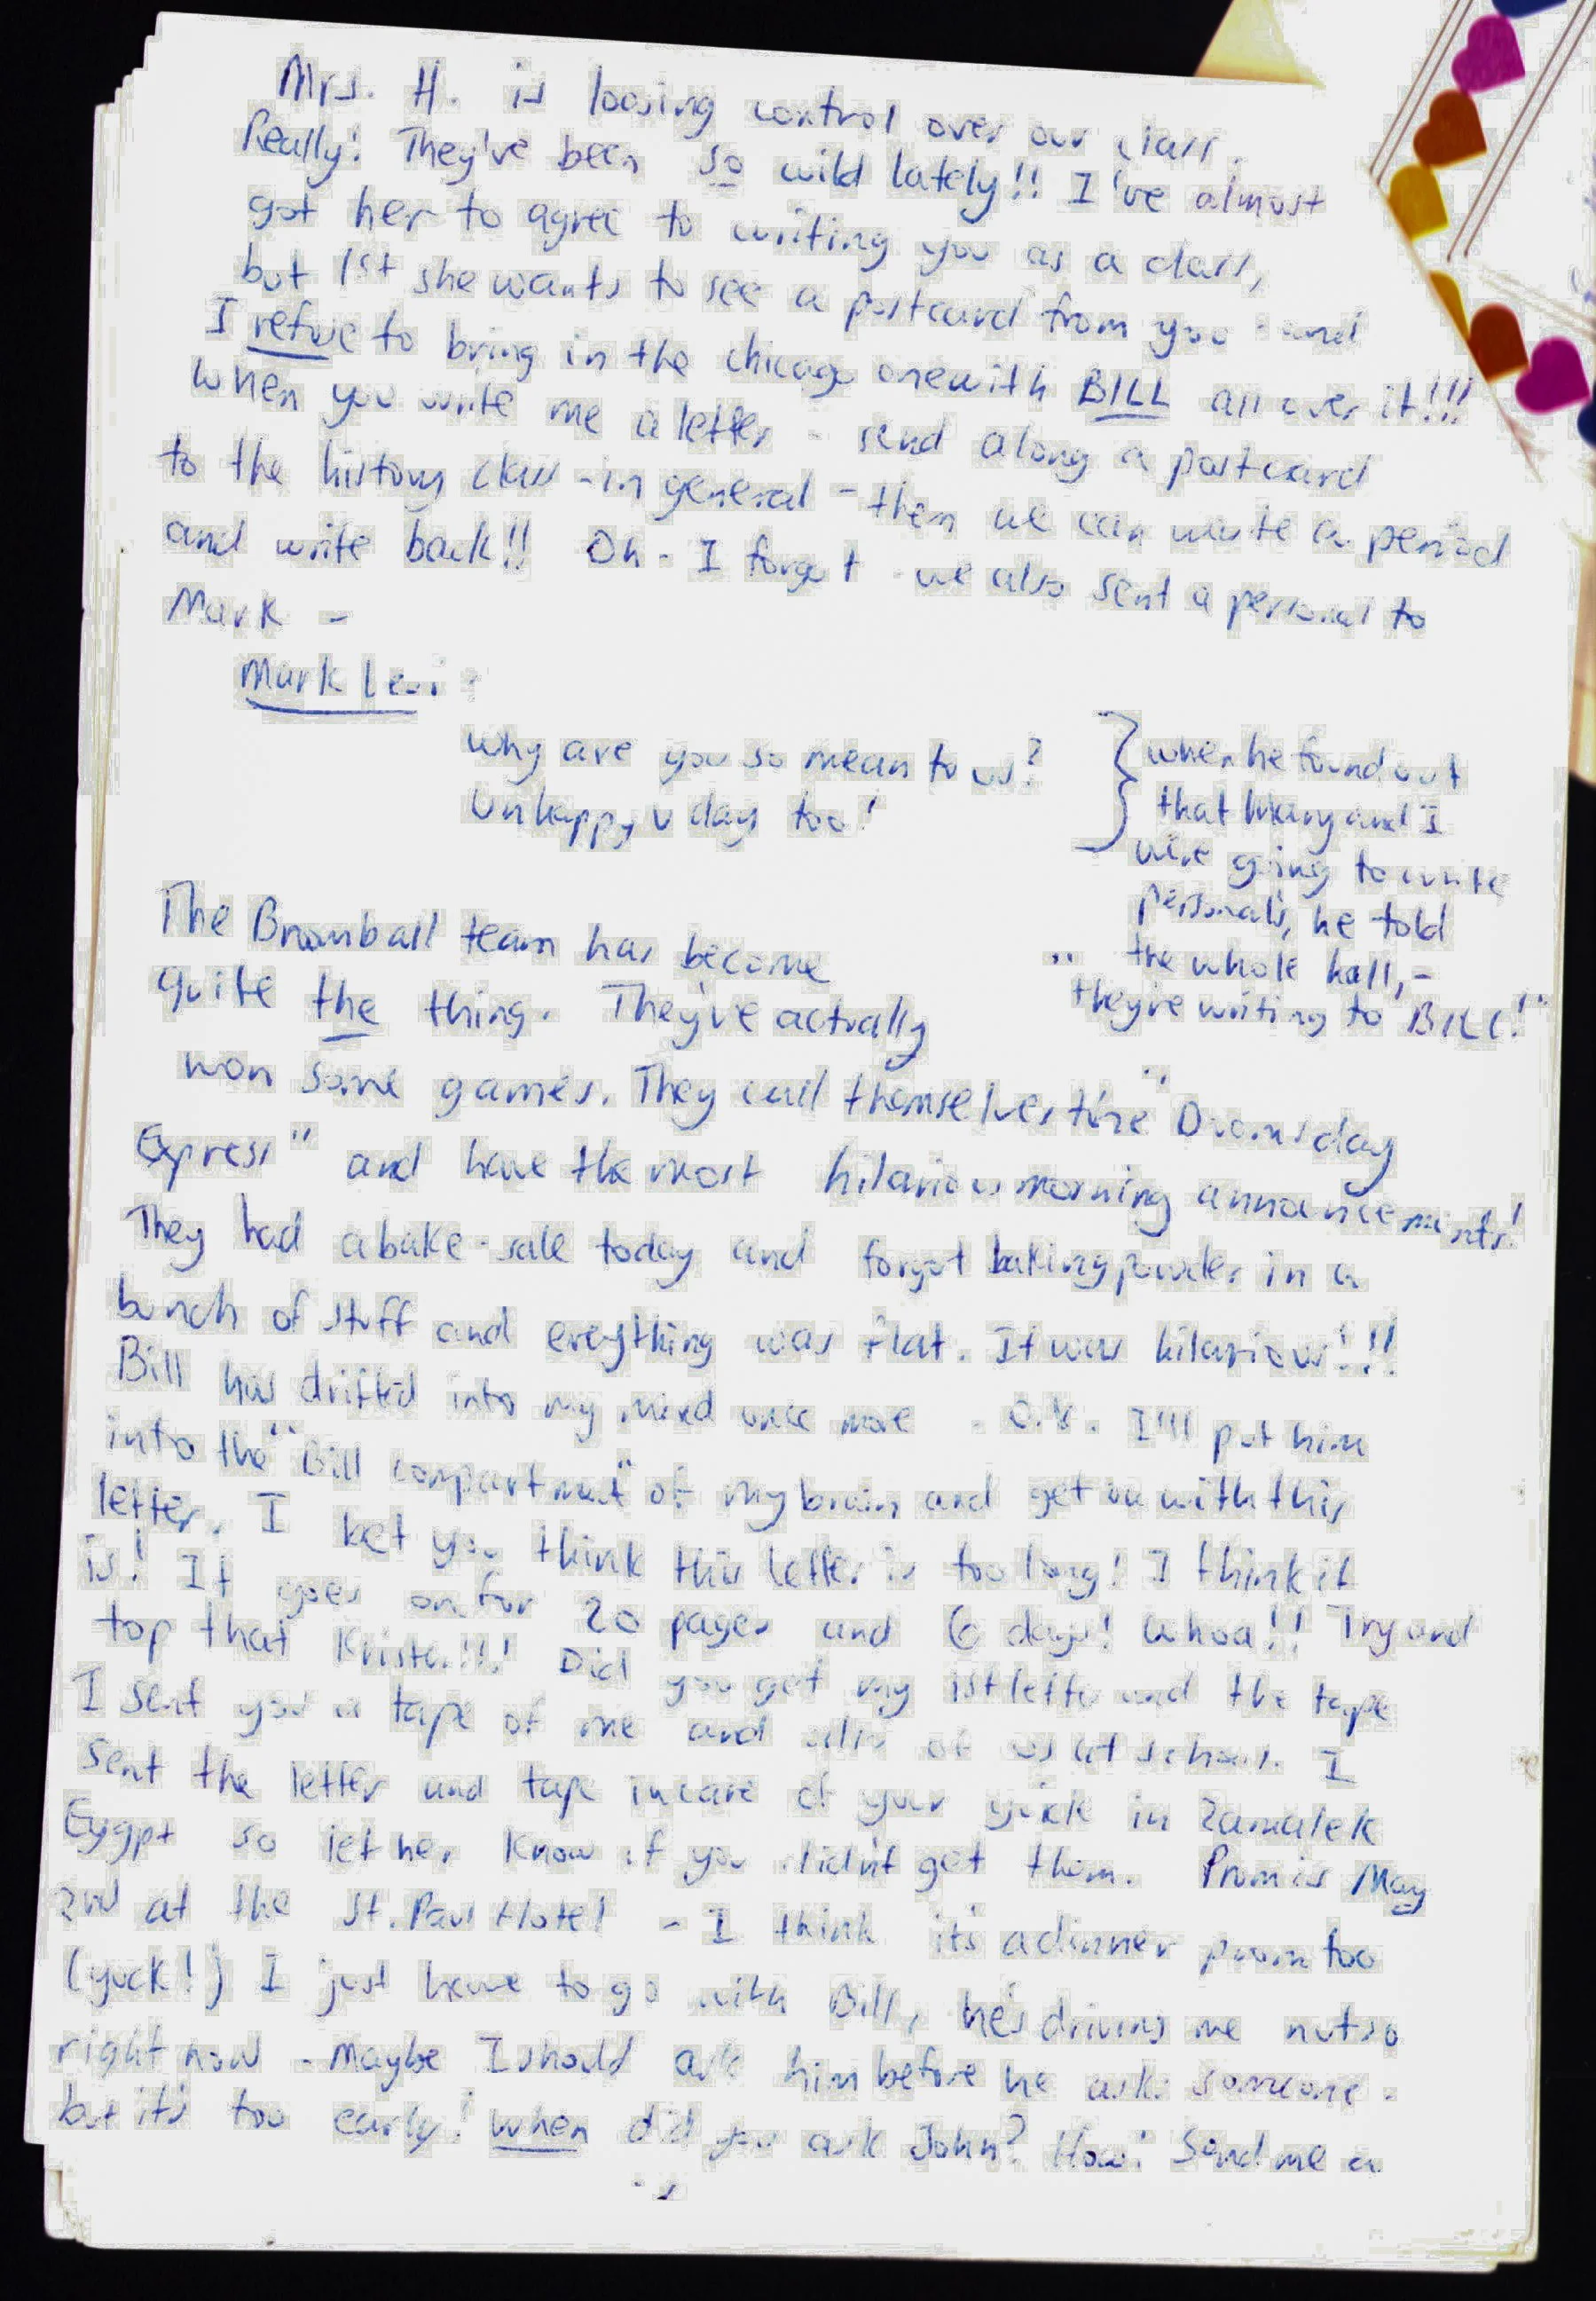 Mrs. H. is loosing control over our class.
Really! They've been so wild lately!! I've almost
got her to agree to writing you as a class,
but 1st she wants to see a postcard from you - and
I refuse to bring in the chicago one with BILL all over it!!!
When you write me a letter - send along a postcard
to the history class - in general - then we can waste a period
and write back!! Oh - I forgot we also sent a personal to
Mark -
Mark
why are you so mean to us?
Unhappy v day too!
when he found out
that Mary and I
were going to write
personals, he told
the whole hall, -
"they're writing to BILL!"
The Broomball team has become
quite the thing. They've actually
won some games. They call themselves the "Doomsday
Express" and have the most hilarious morning announcements!
They had a bake-sale today and forgot baking powder in a
bunch of stuff and everything was flat. It was hilarious!!!
Bill has drifted into my mind once more - O.K. I'll put him
into the "Bill compartment" of my brain and get on with this
letter. I bet you think this letter is too long! I think it
is! It goes on for 20 pages and 6 days! Whoa!! Try and
top that Krista!!! Did you get my 1st letter and the tape
I sent you a tape of me and of us at school. I
sent the letter and tape in care of your in Zamalek
Eygpt so let her know if you didn't get them. Prom is May
2nd at the St. Paul Hotel - I think it's a dinner prom too
(yuck!) I just have to go with Bill, he's driving me nutso
right now - maybe I should ask him before he asks someone -
but it's too early! When did you ask John? How? Send me a